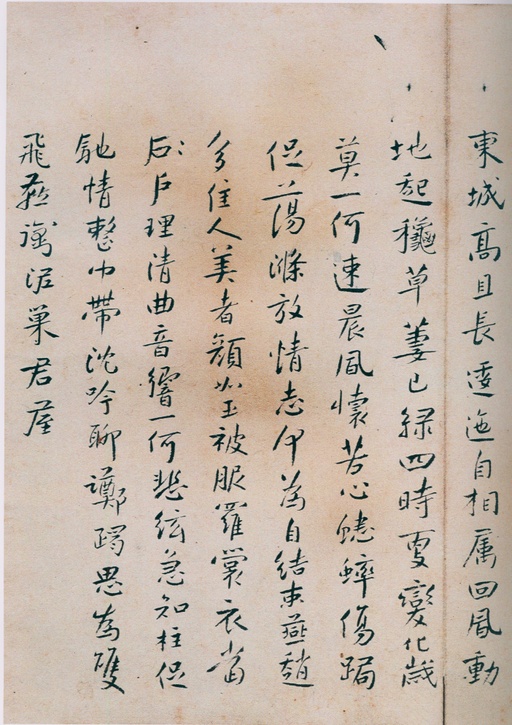 東城高且長逶迤自相属回風動
地起穐草萋已緑四時更變化歳
莫一何速晨風懷苦心蟋蟀傷跼
促蕩滌放情志何為自結束燕趙
多佳人美者顔如玉被服羅裳衣當
戸理清曲音響一何悲絃急知柱促
馳情整巾帶沈吟聊躑躅思為雙
飛燕銜泥巣君屋